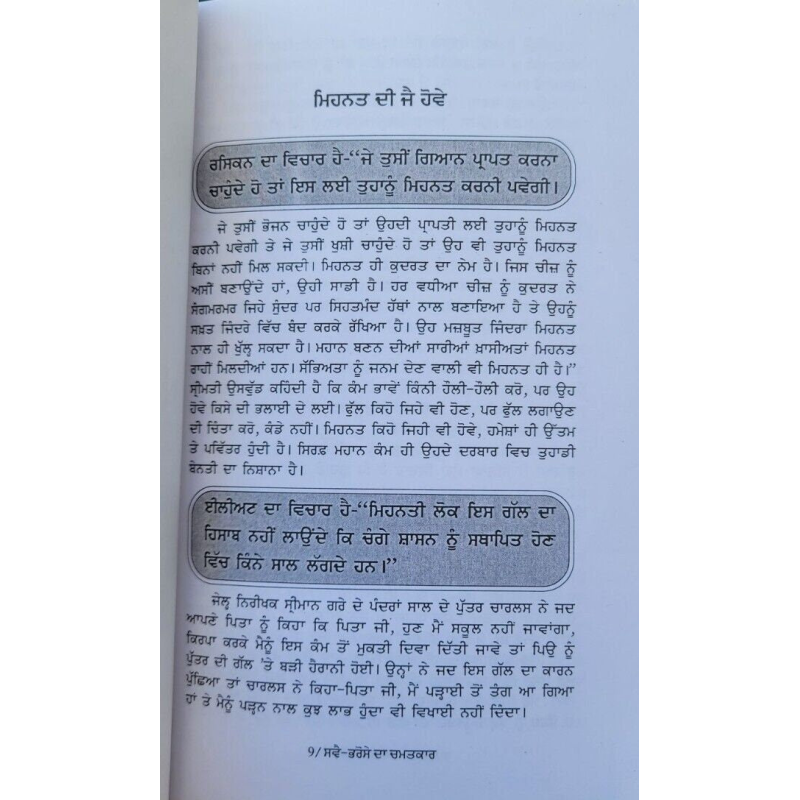 ਮਿਹਨਤ ਦੀ ਜੈ ਹੋਵੇ
ਰਸਿਕਨ ਦਾ ਵਿਚਾਰ ਹੈ-“ਜੇ ਤੁਸੀਂ ਗਿਆਨ ਪ੍ਰਾਪਤ ਕਰਨਾ
ਚਾਹੁੰਦੇ ਹੋ ਤਾਂ ਇਸ ਲਈ ਤੁਹਾਨੂੰ ਮਿਹਨਤ ਕਰਨੀ ਪਵੇਗੀ।
ਜੇ ਤੁਸੀਂ ਭੋਜਨ ਚਾਹੁੰਦੇ ਹੋ ਤਾਂ ਉਹਦੀ ਪ੍ਰਾਪਤੀ ਲਈ ਤੁਹਾਨੂੰ ਮਿਹਨਤ
ਕਰਨੀ ਪਵੇਗੀ ਤੇ ਜੇ ਤੁਸੀਂ ਖੁਸ਼ੀ ਚਾਹੁੰਦੇ ਹੋ ਤਾਂ ਉਹ ਵੀ ਤੁਹਾਨੂੰ ਮਿਹਨਤ
ਬਿਨਾਂ ਨਹੀਂ ਮਿਲ ਸਕਦੀ। ਮਿਹਨਤ ਹੀ ਕੁਦਰਤ ਦਾ ਨੇਮ ਹੈ। ਜਿਸ ਚੀਜ਼ ਨੂੰ
ਅਸੀਂ ਬਣਾਉਂਦੇ ਹਾਂ, ਉਹੀ ਸਾਡੀ ਹੈ। ਹਰ ਵਧੀਆ ਚੀਜ਼ ਨੂੰ ਕੁਦਰਤ ਨੇ
ਸੰਗਮਰਮਰ ਜਿਹੇ ਸੁੰਦਰ ਪਰ ਸਿਹਤਮੰਦ ਹੱਥਾਂ ਨਾਲ ਬਣਾਇਆ ਹੈ ਤੇ ਉਹਨੂੰ
ਸਖ਼ਤ ਜਿੰਦਰੇ ਵਿੱਚ ਬੰਦ ਕਰਕੇ ਰੱਖਿਆ ਹੈ। ਉਹ ਮਜ਼ਬੂਤ ਜਿੰਦਰਾ ਮਿਹਨਤ
ਨਾਲ ਹੀ ਖੁੱਲ੍ਹ ਸਕਦਾ ਹੈ। ਮਹਾਨ ਬਣਨ ਦੀਆਂ ਸਾਰੀਆਂ ਖ਼ਾਸੀਅਤਾਂ ਮਿਹਨਤ
ਰਾਹੀਂ ਮਿਲਦੀਆਂ ਹਨ। ਸੱਭਿਅਤਾ ਨੂੰ ਜਨਮ ਦੇਣ ਵਾਲੀ ਵੀ ਮਿਹਨਤ ਹੀ ਹੈ।”
ਸ੍ਰੀਮਤੀ ਉਸਵੁੱਡ ਕਹਿੰਦੀ ਹੈ ਕਿ ਕੰਮ ਭਾਵੇਂ ਕਿੰਨੀ ਹੌਲੀ-ਹੌਲੀ ਕਰੋ, ਪਰ ਉਹ
ਹੋਵੇ ਕਿਸੇ ਦੀ ਭਲਾਈ ਦੇ ਲਈ। ਫੁੱਲ ਕਿਹੋ ਜਿਹੇ ਵੀ ਹੋਣ, ਪਰ ਫੁੱਲ ਲਗਾਉਣ
ਦੀ ਚਿੰਤਾ ਕਰੋ, ਕੰਡੇ ਨਹੀਂ। ਮਿਹਨਤ ਕਿਹੋ ਜਿਹੀ ਵੀ ਹੋਵੇ, ਹਮੇਸ਼ਾਂ ਹੀ ਉੱਤਮ
ਤੇ ਪਵਿੱਤਰ ਹੁੰਦੀ ਹੈ। ਸਿਰਫ਼ ਮਹਾਨ ਕੰਮ ਹੀ ਉਹਦੇ ਦਰਬਾਰ ਵਿਚ ਤੁਹਾਡੀ
ਬੇਨਤੀ ਦਾ ਨਿਸ਼ਾਨਾ ਹੈ।
ਈਲੀਅਟ ਦਾ ਵਿਚਾਰ ਹੈ-“ਮਿਹਨਤੀ ਲੋਕ ਇਸ ਗੱਲ ਦਾ
ਹਿਸਾਬ ਨਹੀਂ ਲਾਉਂਦੇ ਕਿ ਚੰਗੇ ਸ਼ਾਸਨ ਨੂੰ ਸਥਾਪਿਤ ਹੋਣ
ਵਿੱਚ ਕਿੰਨੇ ਸਾਲ ਲੱਗਦੇ ਹਨ।”
ਜੇਲ੍ਹ ਨਿਰੀਖਕ ਸ੍ਰੀਮਾਨ ਗਰੇ ਦੇ ਪੰਦਰਾਂ ਸਾਲ ਦੇ ਪੁੱਤਰ ਚਾਰਲਸ ਨੇ ਜਦ
ਆਪਣੇ ਪਿਤਾ ਨੂੰ ਕਿਹਾ ਕਿ ਪਿਤਾ ਜੀ, ਹੁਣ ਮੈਂ ਸਕੂਲ ਨਹੀਂ ਜਾਵਾਂਗਾ,
ਕਿਰਪਾ ਕਰਕੇ ਮੈਨੂੰ ਇਸ ਕੰਮ ਤੋਂ ਮੁਕਤੀ ਦਿਵਾ ਦਿੱਤੀ ਜਾਵੇ ਤਾਂ ਪਿਉ ਨੂੰ
ਪੁੱਤਰ ਦੀ ਗੱਲ 'ਤੇ ਬੜੀ ਹੈਰਾਨੀ ਹੋਈ। ਉਨ੍ਹਾਂ ਨੇ ਜਦ ਇਸ ਗੱਲ ਦਾ ਕਾਰਨ
ਪੁੱਛਿਆ ਤਾਂ ਚਾਰਲਸ ਨੇ ਕਿਹਾ-ਪਿਤਾ ਜੀ, ਮੈਂ ਪੜ੍ਹਾਈ ਤੋਂ ਤੰਗ ਆ ਗਿਆ
ਹਾਂ ਤੇ ਮੈਨੂੰ ਪੜ੍ਹਨ ਨਾਲ ਕੁਝ ਲਾਭ ਹੁੰਦਾ ਵੀ ਵਿਖਾਈ ਨਹੀਂ ਦਿੰਦਾ।
9/ ਸਵੈ-ਭਰੋਸੇ ਦਾ ਚਮਤਕਾਰ